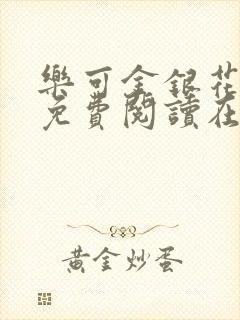 樂可金銀花
免費閱讀在
黃金炒蛋